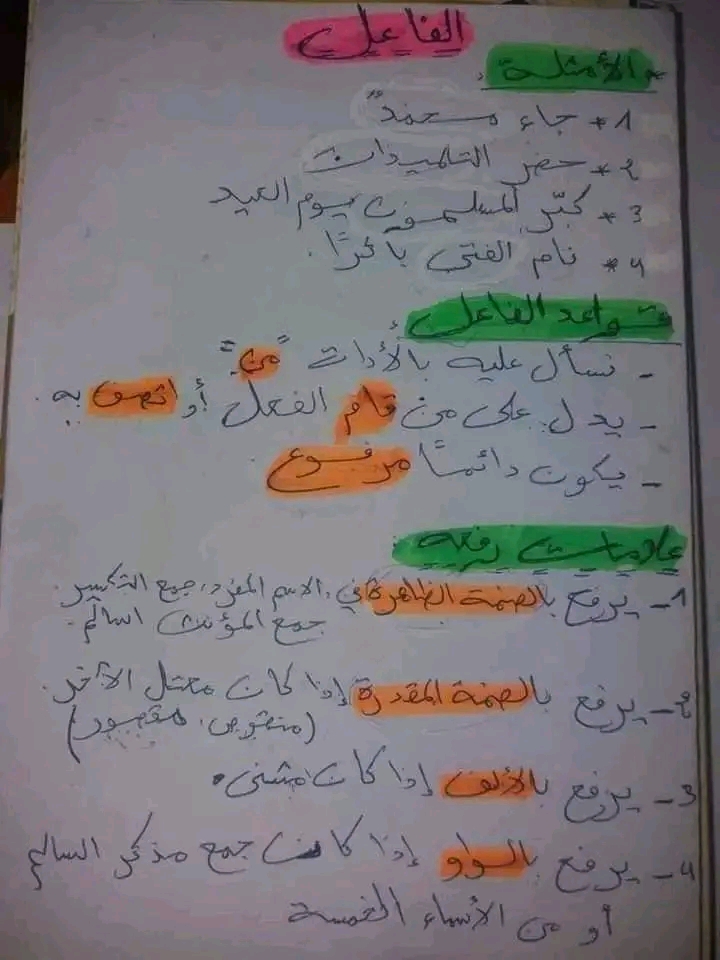 الفاعل
* الأمثلة.
1* جاء محمدٌ
2* حضر التلميذات
3* كبّر المسلمون يوم العيد
4* نام الفتى باكرًا.
قواعد الفاعل
- نسأل عليه بالأدات "من"
- يدل على من قام الفعل أو اتصف به.
- يكون دائمًا مرفوع
علامات رفعه
1- يرفع بالضمة الظاهرة في، الاسم المفرد، جمع التكسير.
جمع المؤنث السالم.
2- يرفع بالضمة المقدرة إذا كان معتل الآخر.
(منقوص، مقصور)
3- يرفع بالألف إذا كان مثنى.
4- يرفع بالواو إذا كان جمع مذكر السالم
أو من الأسماء الخمسة